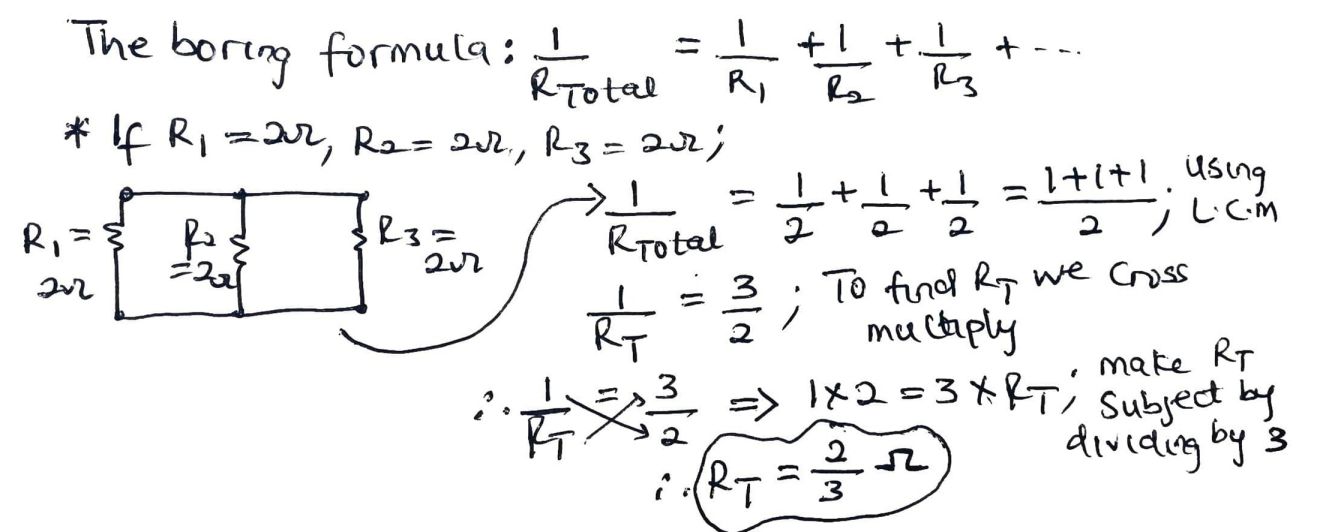 The boring formula: 1/R Total = 1/R1 + 1/R2 + 1/R3 + ---
* If R1 = 2Ω, R2 = 2Ω, R3 = 2Ω;
R1 = 2Ω
R2 = 2Ω
R3 = 2Ω
1/R Total = 1/2 + 1/2 + 1/2 = (1+1+1)/2 ; using L.C.M
1/RT = 3/2 ; To find RT we cross multiply
∴ 1/RT = 3/2 => 1×2 = 3×RT ; make RT subject by dividing by 3
∴ RT = 2/3 Ω